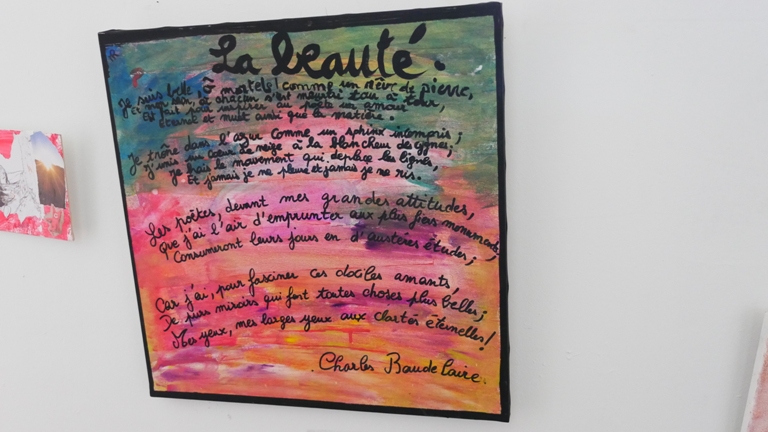 La beauté.
Je suis belle, ô mortels! comme un rêve de pierre,
et mon sein, où chacun s'est meurtri tour à tour,
Est fait pour inspirer au poète un amour
éternel et muet ainsi que la matière.
Je trône dans l'azur comme un sphinx incompris;
J'unis un cœur de neige à la blancheur des cygnes;
Je hais le mouvement qui déplace les lignes,
Et jamais je ne pleure et jamais je ne ris.
Les poètes, devant mes grandes attitudes,
Que j'ai l'air d'emprunter aux plus fiers monuments,
Consumeront leurs jours en d'austères études;
Car j'ai, pour fasciner ces dociles amants,
De purs miroirs qui font toutes choses plus belles;
Mes yeux, mes larges yeux aux clartés éternelles!
. Charles Baudelaire.